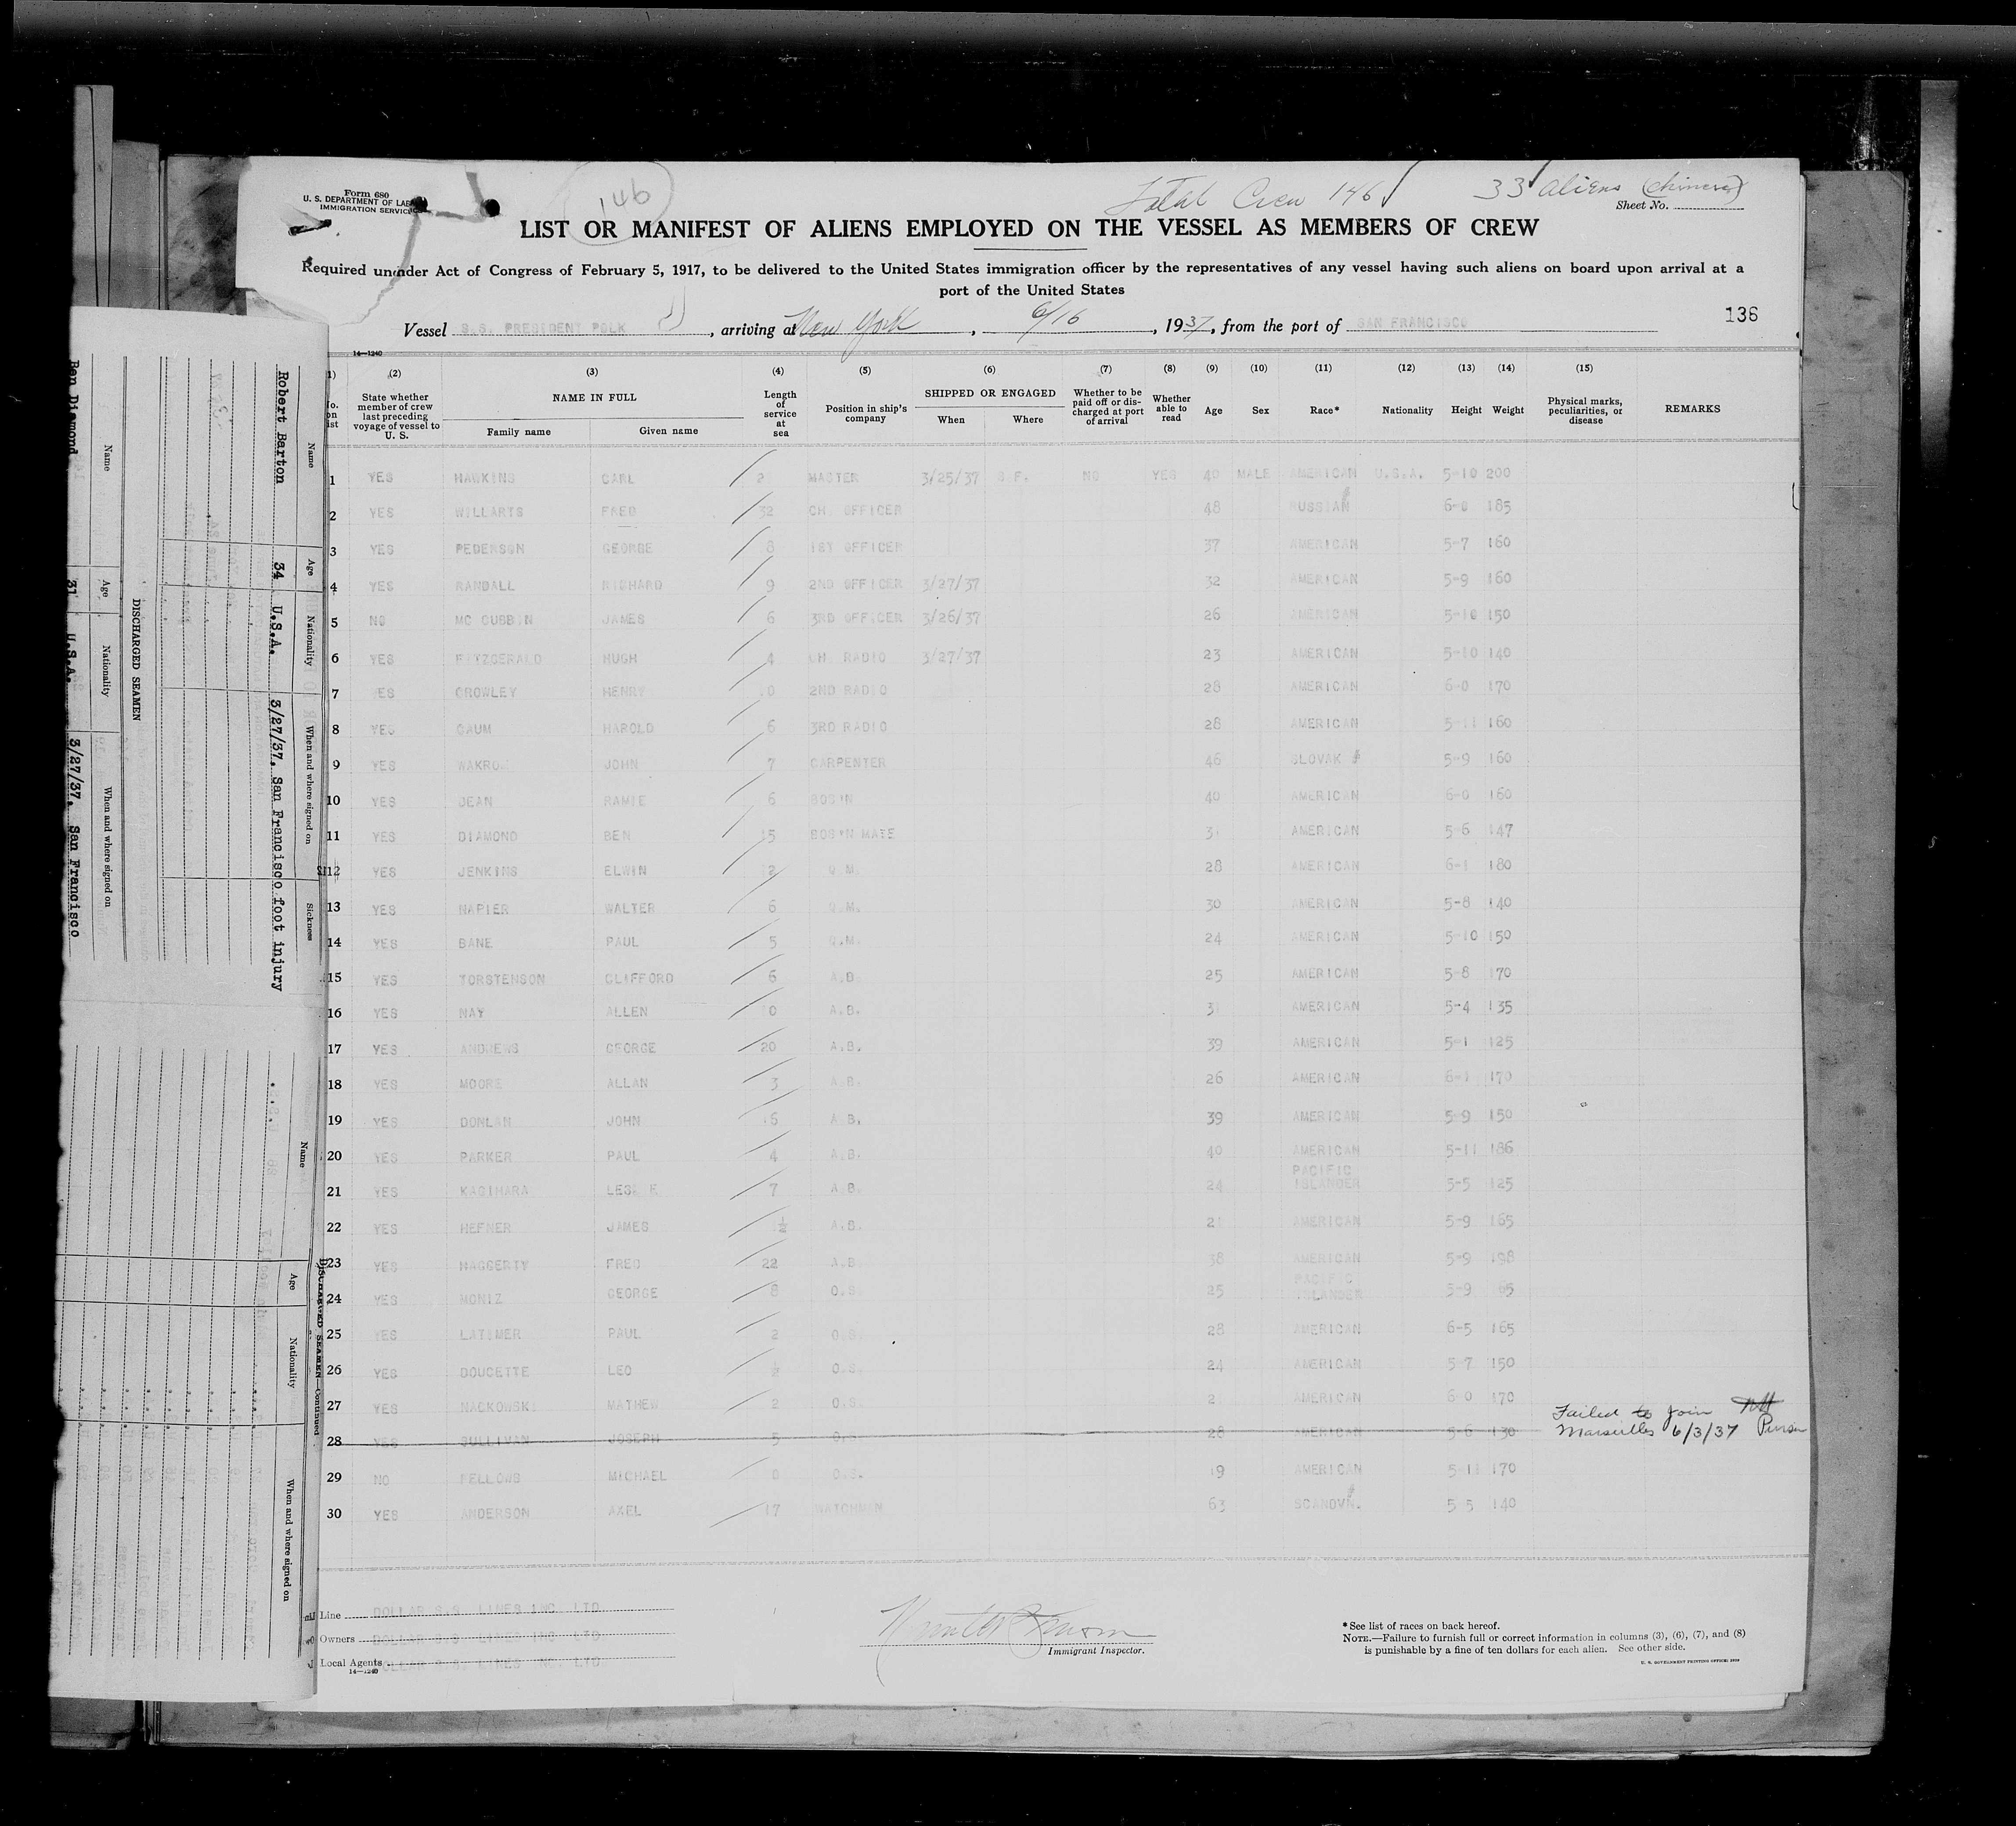 Form 680
U. S. DEPARTMENT OF LAB
IMMIGRATION SERVICE
146
Total Crew 146
33 aliens (chinese)
Sheet No.
LIST OR MANIFEST OF ALIENS EMPLOYED ON THE VESSEL AS MEMBERS OF CREW
Required under Act of Congress of February 5, 1917, to be delivered to the United States immigration officer by the representatives of any vessel having such aliens on board upon arrival at a
port of the United States
Vessel S.S. PRESIDENT POLK, arriving at New York, 6/16, 1937, from the port of SAN FRANCISCO
136
14—1240
(1) (2) (3) (4) (5) (6) (7) (8) (9) (10) (11) (12) (13) (14) (15)
No. on list State whether member of crew last preceding voyage of vessel to U. S. NAME IN FULL Family name Given name Length of service at sea Position in ship's company SHIPPED OR ENGAGED When Where Whether to be paid off or discharged at port of arrival Whether able to read Age Sex Race* Nationality Height Weight Physical marks, peculiarities, or disease REMARKS
1 YES HAWKINS CARL MASTER 3/25/37 S F. NO YES 40 MALE AMERICAN U.S.A. 5-10 200
2 YES WILLARTS FRED 32 CH. OFFICER 48 RUSSIAN 6-0 185
3 YES PEDERSON GEORGE 8 1ST OFFICER 37 AMERICAN 5-7 160
4 YES RANDALL RICHARD 9 2ND OFFICER 3/27/37 32 AMERICAN 5-9 160
5 NO MC CUBBIN JAMES 6 3RD OFFICER 3/26/37 26 AMERICAN 5-10 150
6 YES FITZGERALD HUGH 4 CH. RADIO 3/27/37 23 AMERICAN 5-10 140
7 YES CROWLEY HENRY 2ND RADIO 28 AMERICAN 6-0 170
8 YES HAROLD 6 3RD RADIO 28 AMERICAN 5-11 160
9 YES JOHN 7 CARPENTER 46 SLOVAK 5-9 160
10 YES DEAN RAMIE 6 BOS'N 40 AMERICAN 6-0 160
11 YES DIAMOND BEN 15 BOS'N MATE 31 AMERICAN 5-6 147
12 YES JENKINS ELWIN Q.M. 28 AMERICAN 6-1 180
13 YES NAPIER WALTER 6 Q.M. 30 AMERICAN 5-8 140
14 YES BANE PAUL 5 Q.M. 24 AMERICAN 5-10 150
15 YES TORSTENSON CLIFFORD 6 A.B. 25 AMERICAN 5-8 170
16 YES NAY ALLEN A.B. AMERICAN 5-4 135
17 YES ANDREWS GEORGE 20 A.B. 39 AMERICAN 5-1 125
18 YES MOORE ALLAN 3 A.B. 26 AMERICAN 6-1 170
19 YES DONLAN JOHN A.B. 39 AMERICAN 5-9 150
20 YES PARKER PAUL 4 A.B. 40 AMERICAN 5-11 186
21 YES KAGIHARA LESLIE 7 A.B. 24 PACIFIC ISLANDER 5-5 125
22 YES HEFNER JAMES A.B. 21 AMERICAN 5-9 165
23 YES HAGGERTY FRED 22 A.B. 38 AMERICAN 5-9 198
24 YES MONIZ GEORGE 8 O.S. 25 PACIFIC ISLANDER 5-9
25 YES LATIMER PAUL 2 O.S. 28 AMERICAN 6-5 165
26 YES DOUCETTE LEO ½ O.S. 24 AMERICAN 5-7 150
27 YES NACKOWSKI MATHEW 2 O.S. AMERICAN 6-0 170
28 YES SULLIVAN JOSEPH 5 O.S. 28 AMERICAN 5-6 130 Failed to join Marseilles 6/3/37 Purser
29 NO FELLOWS MICHAEL 0 O.S. 19 AMERICAN 5-11 170
30 YES ANDERSON AXEL 17 WATCHMAN 63 SCANDVN. 5-5 140
Line DOLLAR S.S. LINES INC. LTD
Owners DOLLAR S.S. LINES INC LTD
Local Agents DOLLAR S.S. LINES INC. LTD
14—1240
Immigrant Inspector.
* See list of races on back hereof.
NOTE.—Failure to furnish full or correct information in columns (3), (6), (7), and (8)
is punishable by a fine of ten dollars for each alien. See other side.
U. S. GOVERNMENT PRINTING OFFICE: 1936
Name Age Nationality When and where signed on Sickness
Robert Barton 34 U.S.A. 3/27/37. San Francisco foot injury
DISCHARGED SEAMEN
Name Age Nationality When and where signed on
Ben Diamond 31 U.S.A. 3/27/37. San Francisco
DISCHARGED SEAMEN—Continued
Name Age Nationality When and where signed on